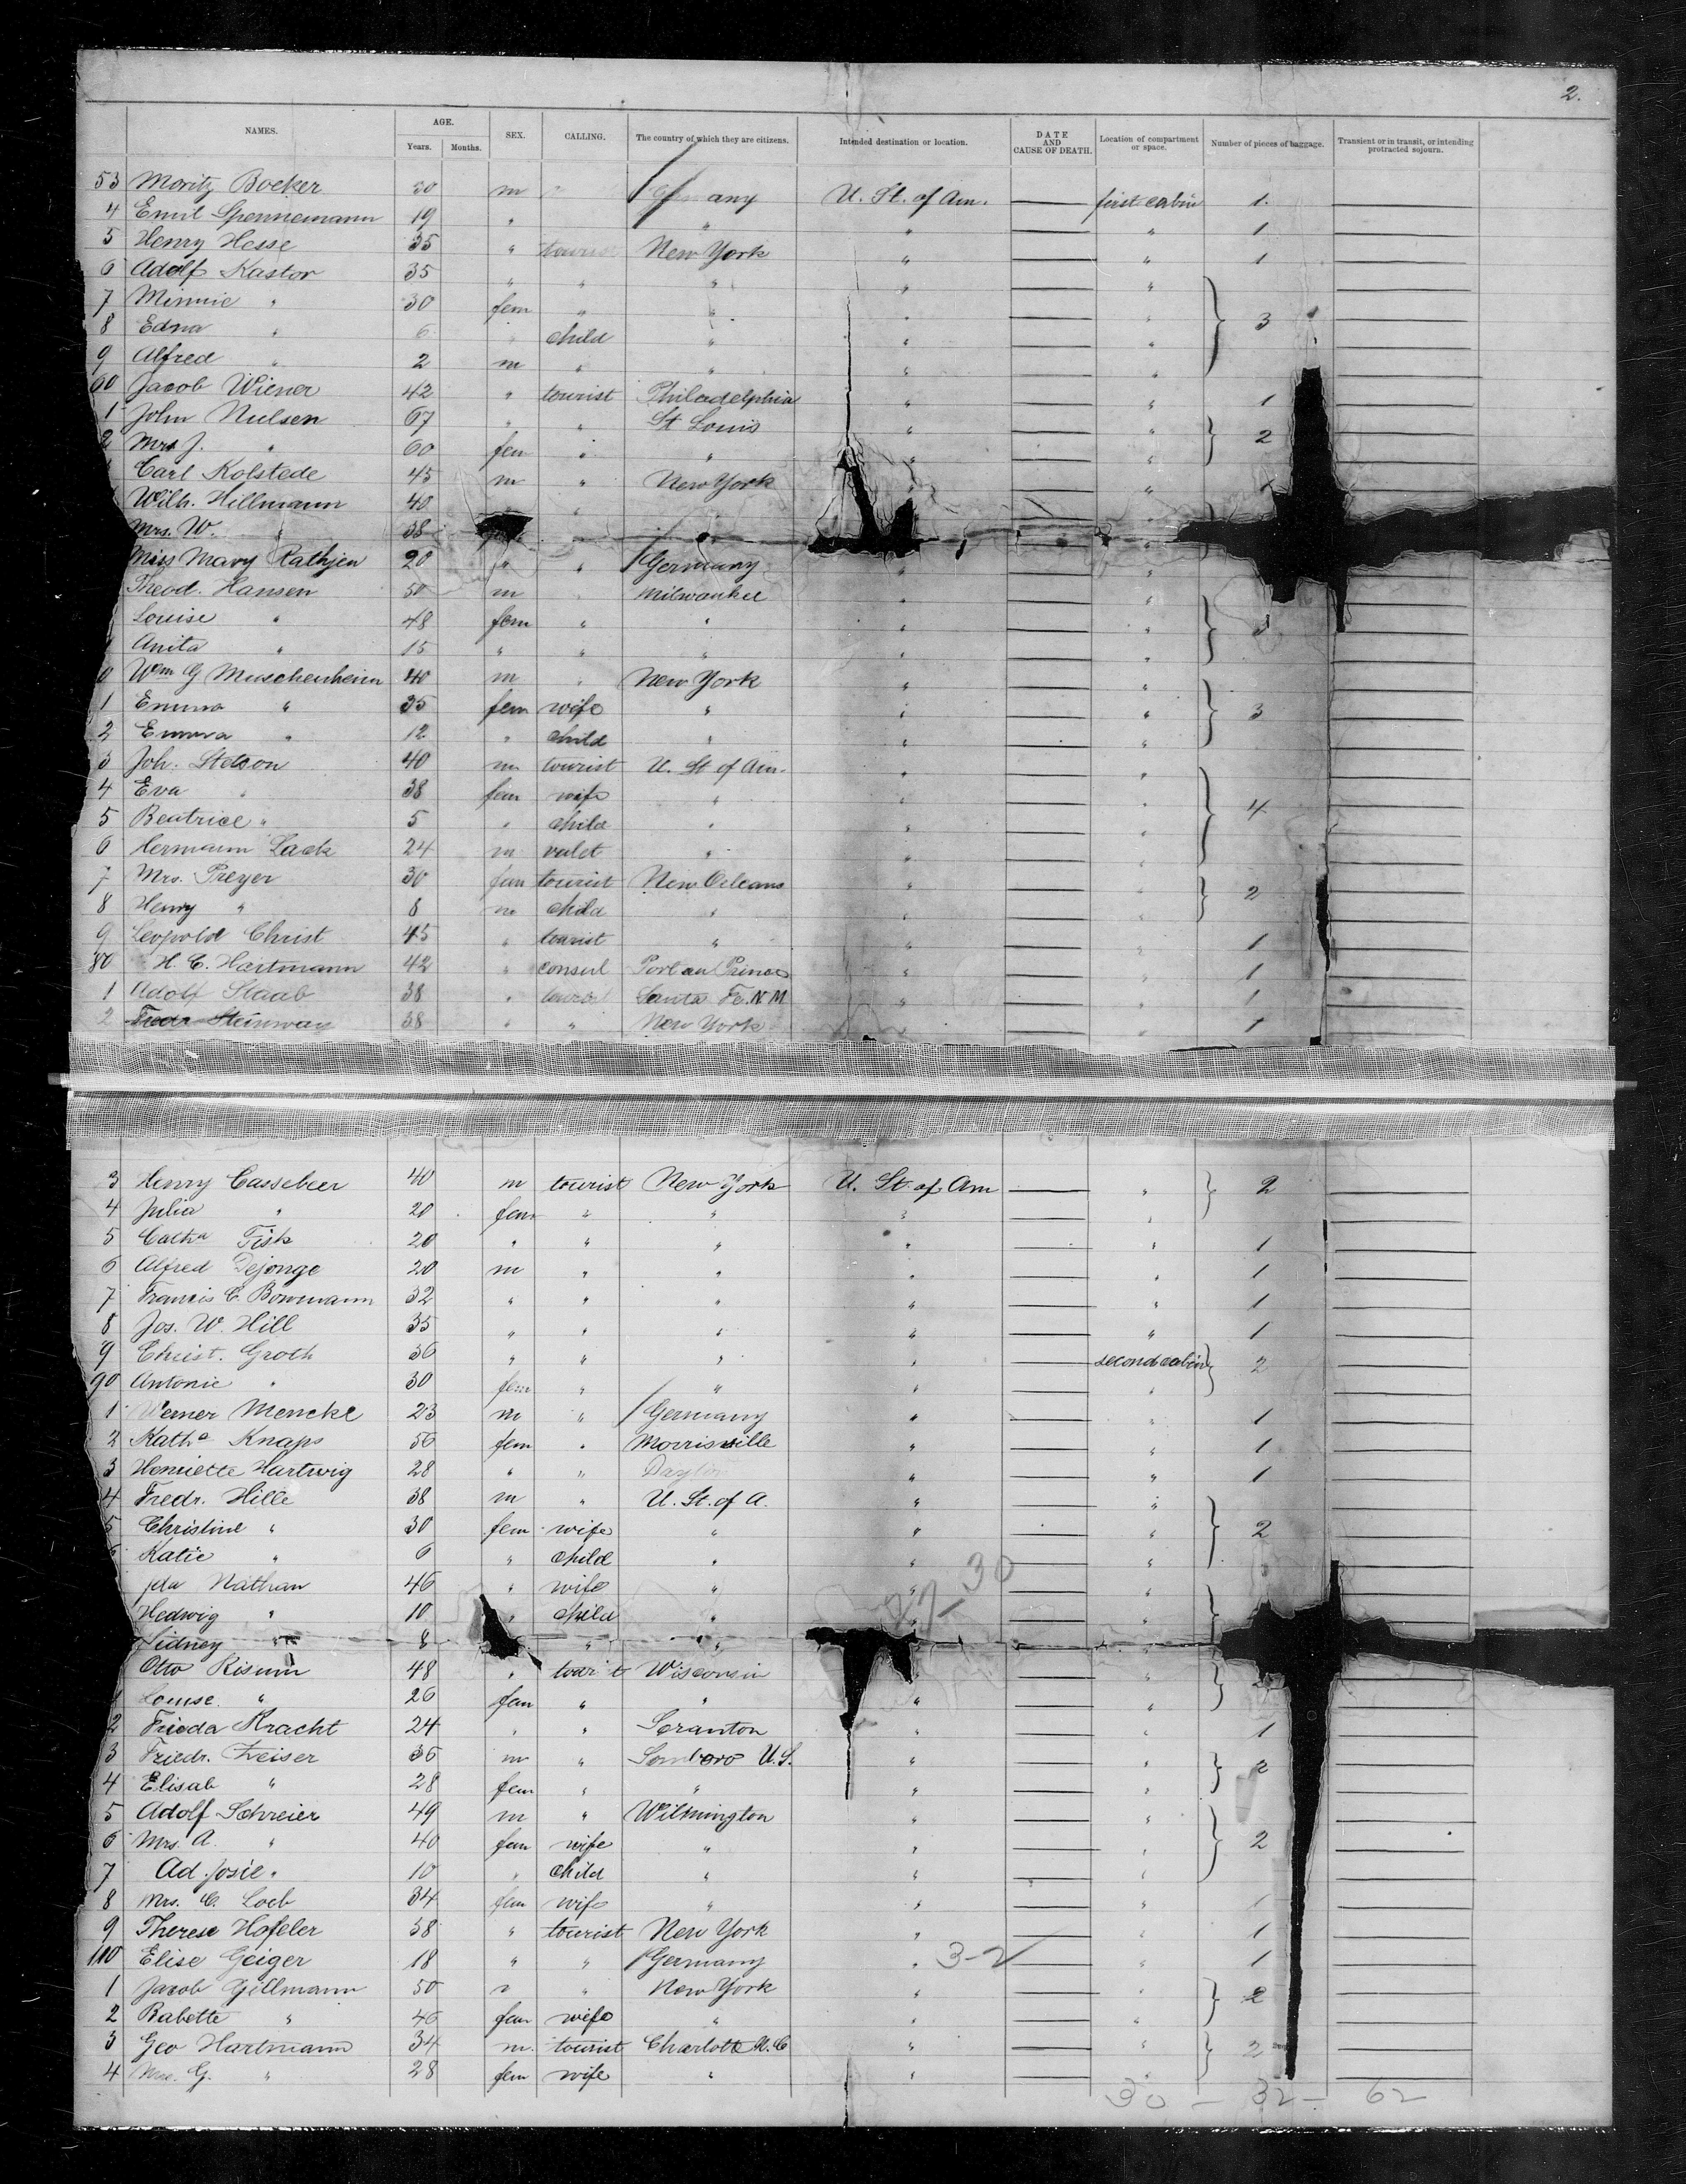 2.
NAMES. AGE. Years. Months. SEX. CALLING. The country of which they are citizens. Intended destination or location. DATE AND CAUSE OF DEATH. Location of compartment or space. Number of pieces of baggage. Transient or in transit, or intending protracted sojourn.
53 Moritz Boeker 30 m Germany U. St. of Am. first cabin 1.
4 Emil Spennemann 19 " " " " 1
5 Henry Hesse 35 " tourist New York " " 1
6 Adolf Kastor 35 " " " " "
7 Minnie " 30 fem " " " " 3
8 Edna " 6 " child " " "
9 Alfred " 2 m " " " "
60 Jacob Wiener 42 " tourist Philadelphia " " 1
1 John Nulsen 67 " " St Louis " " 2
2 Mrs J. " 60 fem " " " "
Carl Kolstede 45 m " New York " "
Wilh. Hillmann 40 " " "
Mrs. W. 38 "
Miss Mary Rathjen 20 " " Germany " "
Theod. Hansen 50 m " Milwaukee " "
Louise " 48 fem " " " " 3
Anita " 15 " " " " "
0 Wm G Muschenheim 40 m " New York " "
1 Emma " 35 fem wife " " " 3
2 Emma " 12 " child " " "
3 Joh. Stetson 40 m tourist U. St of Am. " "
4 Eva " 38 fem wife " " " 4
5 Beatrice " 5 " child " " "
6 Hermann Lack 24 m valet " " "
7 Mrs. Preyer 30 fem tourist New Orleans " " 2
8 Henry " 8 m child " " "
9 Leopold Christ 45 " tourist " " " 1
80 H. C. Hartmann 42 " consul Port au Prince " " 1
1 Adolf Staab 38 " tourist Santa Fe. N M " " 1
2 Fredr Steinway 38 " " New York 1
3 Henry Cassebeer 40 m tourist New York U. St. of Am " 2
4 Julia " 20 fem " " " "
5 Catha Fisk 20 " " " " " 1
6 Alfred Dejonge 20 m " " " " 1
7 Francis C. Bowmann 32 " " " " " 1
8 Jos. W. Hill 35 " " " " " 1
9 Christ. Groth 36 " " " " second cabin 2
90 Antonie " 30 fem " " " "
1 Werner Mencke 23 m " Germany " " 1
2 Katha Knaps 56 fem " Morrisville " " 1
3 Henriette Hartwig 28 " " " " 1
4 Fredr. Hille 38 m " U. St. of A. " "
5 Christine " 30 fem wife " " " 2
6 Katie " 6 " child " " "
Ida Nathan 46 " wife " " "
Hedwig " 10 " child " "
Sidney " 8 " " "
Otto Risum 48 " tourist Wisconsin "
1 Louise " 26 fem " " " "
2 Frieda Kracht 24 " " Scranton " " 1
3 Friedr. Zeiser 36 m " U.S. " " 2
4 Elisab " 28 fem " " " "
5 Adolf Schreier 49 m " Wilmington " "
6 Mrs. A. " 40 fem wife " " " 2
7 Ad. Josie " 10 " child " " "
8 Mrs. C. Loeb 34 fem wife " " " 1
9 Therese Hofeler 38 " tourist New York " " 1
110 Elise Geiger 18 " " Germany " 3-2 " 1
1 Jacob Gillmann 50 " New York " " 2
2 Babette " 46 fem wife " " "
3 Geo Hartmann 34 m. tourist Charlotte N.C " " 2
4 Mrs. G. " 28 fem wife " " "
30 - 32 - 62